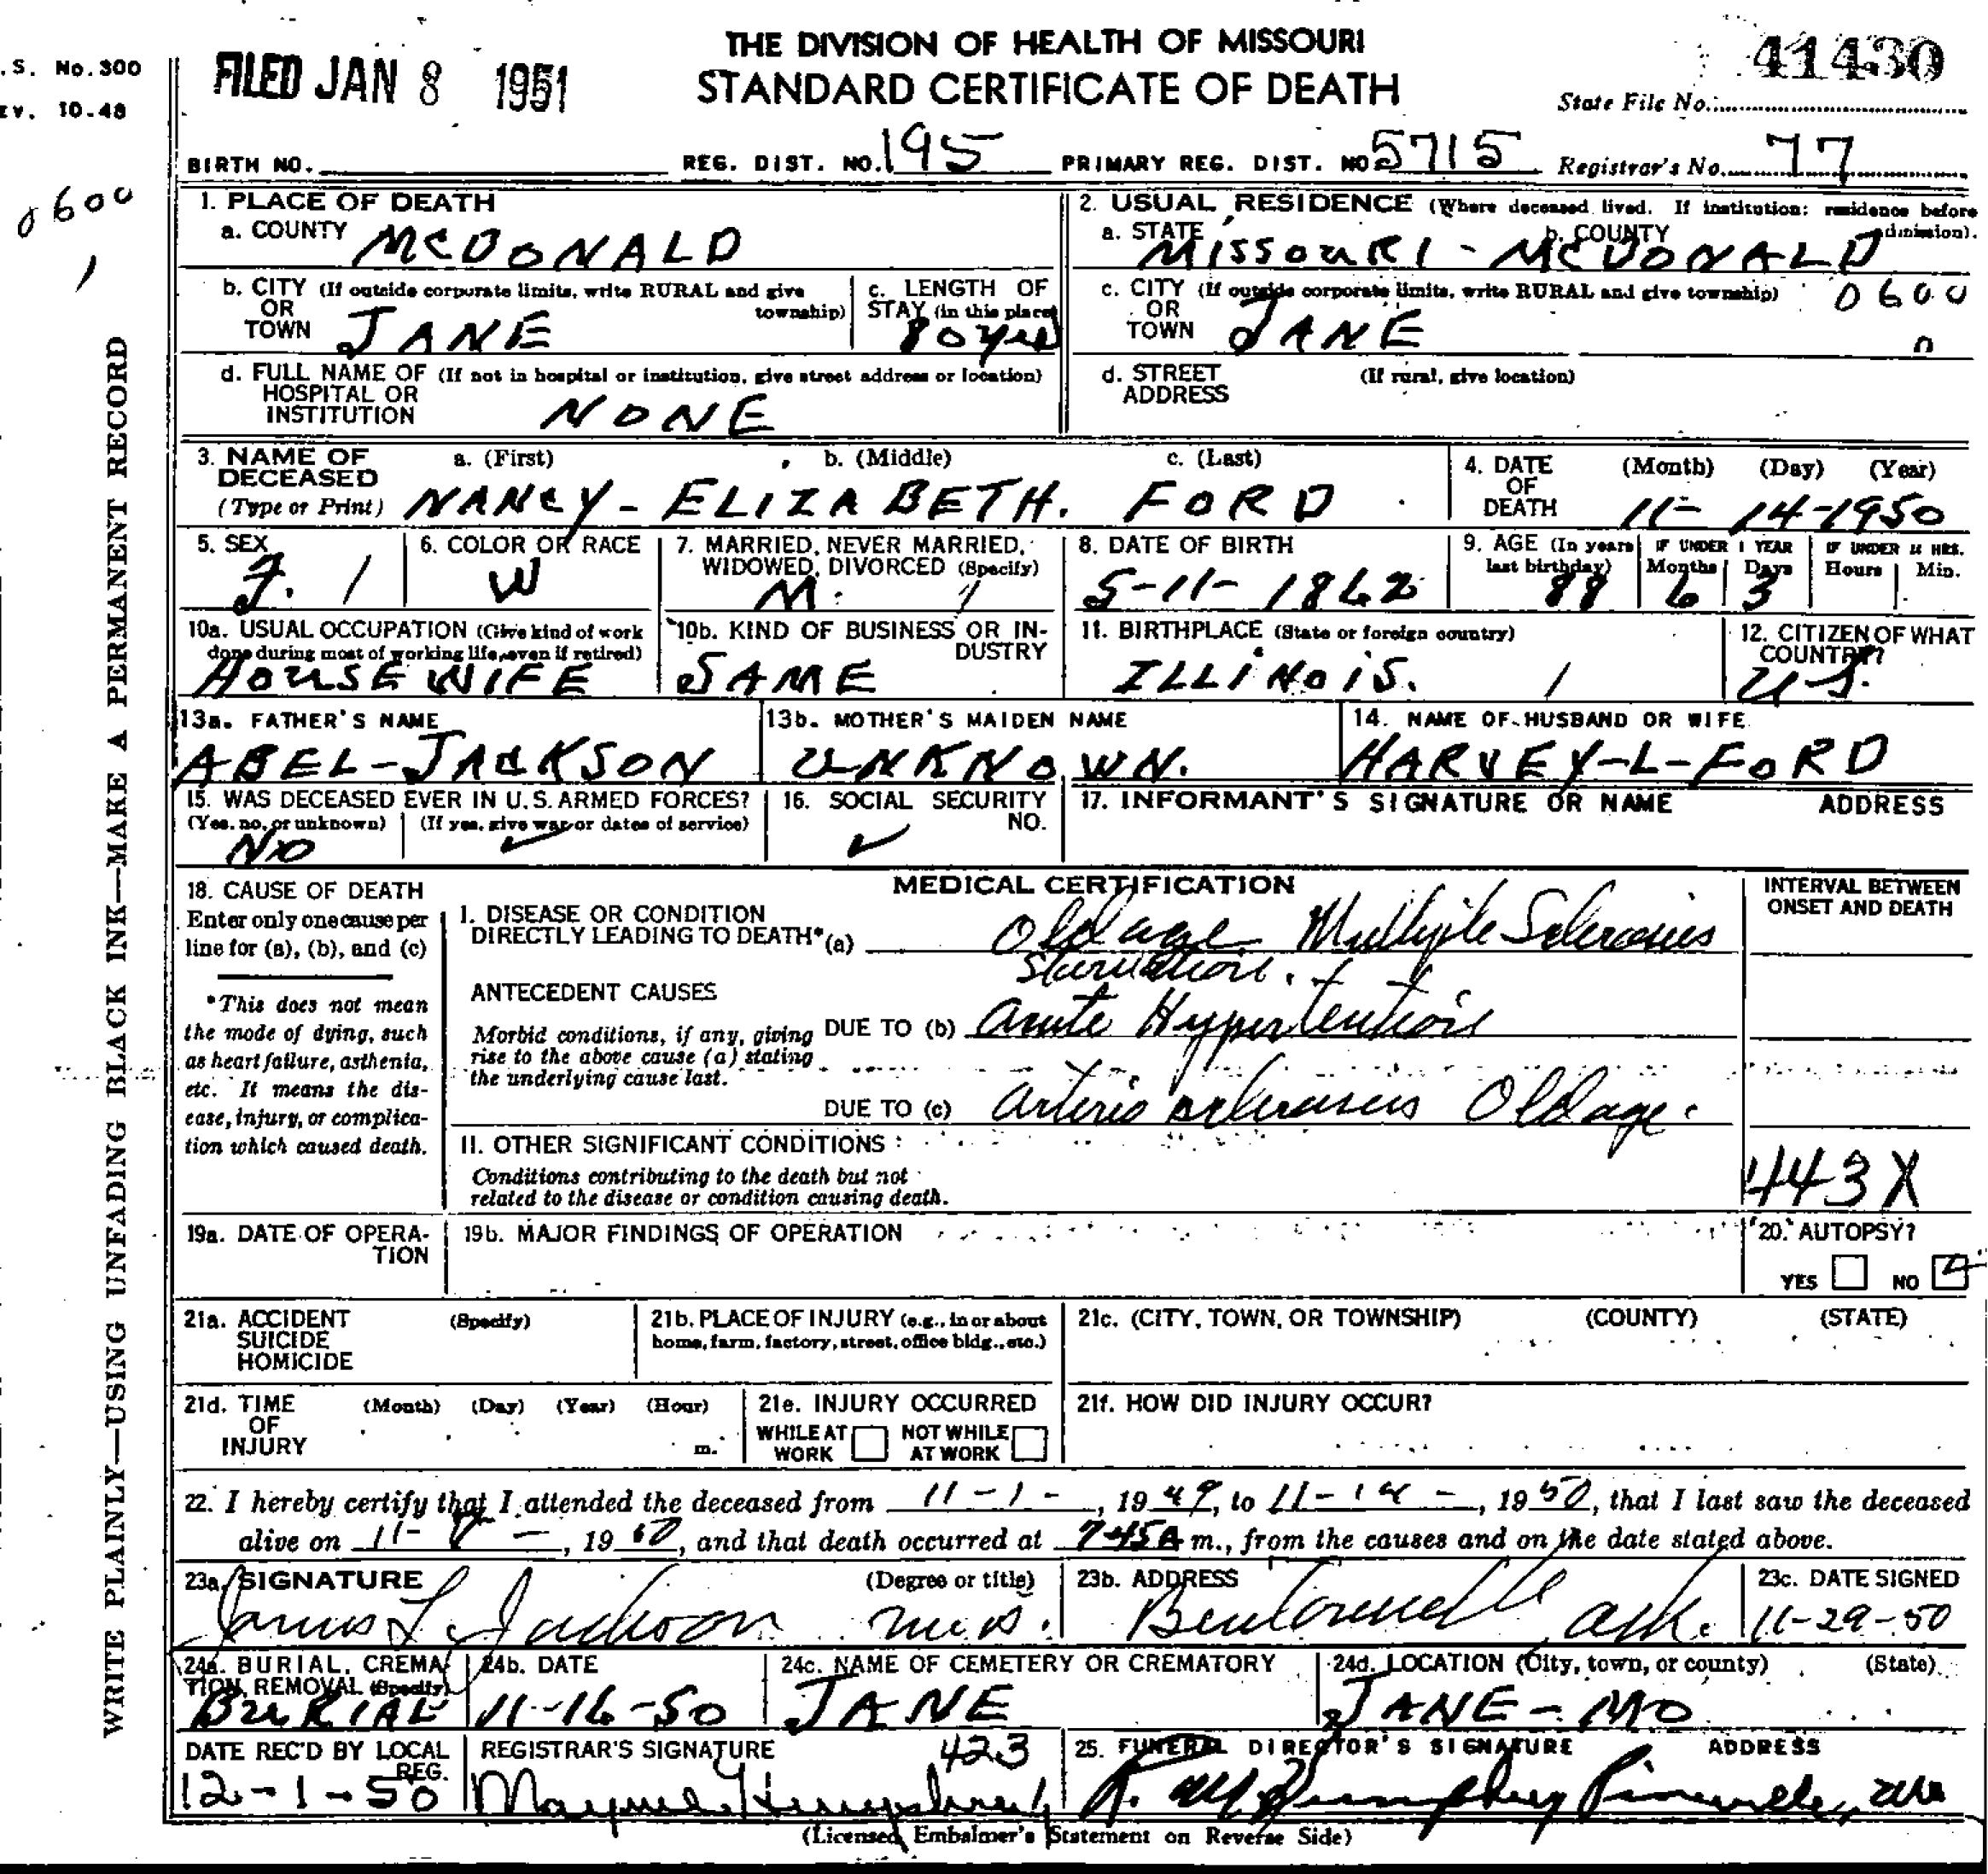 THE DIVISION OF HEALTH OF MISSOURI
STANDARD CERTIFICATE OF DEATH
.S. No. 300
EV. 10-48
FILED JAN 8 1951
41430
State File No.
BIRTH NO.
REG. DIST. NO. 195
PRIMARY REG. DIST. NO 5715
Registrar's No. 77
0600
1
WRITE PLAINLY—USING UNFADING BLACK INK—MAKE A PERMANENT RECORD
1. PLACE OF DEATH
a. COUNTY McDONALD
b. CITY (If outside corporate limits, write RURAL and give township)
OR
TOWN JANE
c. LENGTH OF
STAY (in this place)
80 yrs
d. FULL NAME OF (If not in hospital or institution, give street address or location)
HOSPITAL OR
INSTITUTION NONE
2. USUAL RESIDENCE (Where deceased lived. If institution: residence before
admission).
a. STATE b. COUNTY
MISSOURI - McDONALD
c. CITY (If outside corporate limits, write RURAL and give township) 0600
OR
TOWN JANE
d. STREET (If rural, give location)
ADDRESS
3. NAME OF a. (First) b. (Middle) c. (Last)
DECEASED
(Type or Print) NANCY - ELIZABETH. FORD
4. DATE (Month) (Day) (Year)
OF
DEATH 11- 14-1950
5. SEX
F. 1
6. COLOR OR RACE
W
7. MARRIED, NEVER MARRIED,
WIDOWED, DIVORCED (Specify)
M. 1
8. DATE OF BIRTH
5-11- 1862
9. AGE (In years last birthday) IF UNDER 1 YEAR IF UNDER 24 HRS.
Months Days Hours Min.
88 6 3
10a. USUAL OCCUPATION (Give kind of work
done during most of working life, even if retired)
HOUSEWIFE
10b. KIND OF BUSINESS OR IN-
DUSTRY
SAME
11. BIRTHPLACE (State or foreign country)
ILLINOIS. 1
12. CITIZEN OF WHAT
COUNTRY?
U.S.
13a. FATHER'S NAME
ABEL-JACKSON
13b. MOTHER'S MAIDEN NAME
UNKNOWN.
14. NAME OF HUSBAND OR WIFE
HARVEY-L-FORD
15. WAS DECEASED EVER IN U.S. ARMED FORCES?
(Yes, no, or unknown) (If yes, give war or dates of service)
NO ✓
16. SOCIAL SECURITY
NO.
✓
17. INFORMANT'S SIGNATURE OR NAME ADDRESS
18. CAUSE OF DEATH
Enter only one cause per
line for (a), (b), and (c)
*This does not mean
the mode of dying, such
as heart failure, asthenia,
etc. It means the dis-
ease, injury, or complica-
tion which caused death.
MEDICAL CERTIFICATION
INTERVAL BETWEEN
ONSET AND DEATH
I. DISEASE OR CONDITION
DIRECTLY LEADING TO DEATH* (a) Old age Multiple Sclerosis
Starvation.
ANTECEDENT CAUSES
Morbid conditions, if any, giving
rise to the above cause (a) stating
the underlying cause last.
DUE TO (b) Acute Hypertention
DUE TO (c) Arterio sclerosis Old age.
II. OTHER SIGNIFICANT CONDITIONS
Conditions contributing to the death but not
related to the disease or condition causing death.
443X
19a. DATE OF OPERA-
TION
19b. MAJOR FINDINGS OF OPERATION
20. AUTOPSY?
YES NO
21a. ACCIDENT (Specify)
SUICIDE
HOMICIDE
21b. PLACE OF INJURY (e.g., in or about
home, farm, factory, street, office bldg., etc.)
21c. (CITY, TOWN, OR TOWNSHIP) (COUNTY) (STATE)
21d. TIME (Month) (Day) (Year) (Hour)
OF
INJURY m.
21e. INJURY OCCURRED
WHILE AT WORK NOT WHILE AT WORK
21f. HOW DID INJURY OCCUR?
22. I hereby certify that I attended the deceased from 11-1-, 1949, to 11-14-, 1950, that I last saw the deceased
alive on 11-8-, 1950, and that death occurred at 7:45A m., from the causes and on the date stated above.
23a. SIGNATURE (Degree or title)
James L. Jackson M.D.
23b. ADDRESS
Bentonville Ark.
23c. DATE SIGNED
11-29-50
24a. BURIAL, CREMA-
TION, REMOVAL (Specify)
BURIAL
24b. DATE
11-16-50
24c. NAME OF CEMETERY OR CREMATORY
JANE
24d. LOCATION (City, town, or county) (State)
JANE-MO
DATE REC'D BY LOCAL
REG.
12-1-50
REGISTRAR'S SIGNATURE 423
Humphrey
25. FUNERAL DIRECTOR'S SIGNATURE ADDRESS
Humphrey Pineville, Mo
(Licensed Embalmer's Statement on Reverse Side)